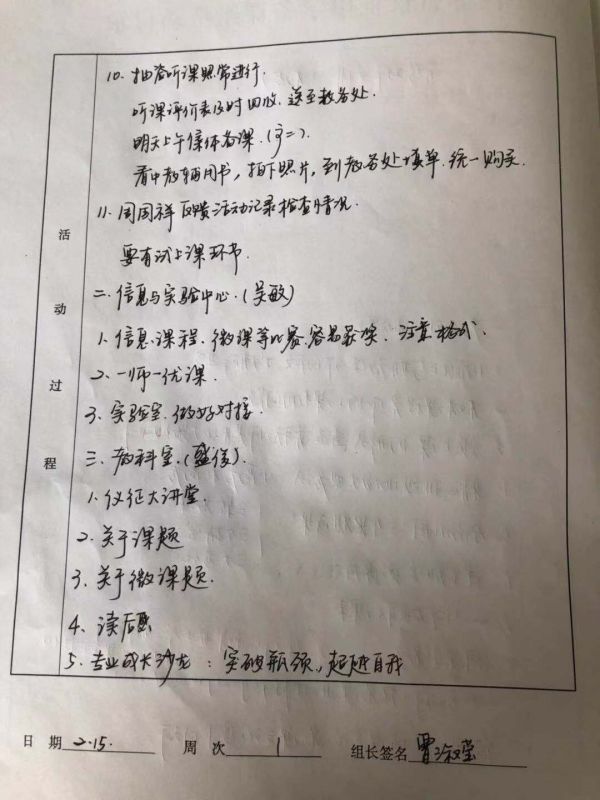 10. 抽查听课照常进行.
听课评价表及时回收,送至教务处.
明天上午集体备课.(高二).
看中教辅用书,拍下照片,到教务处填单.统一购买.
11. 周国祥反馈活动记录检查情况.
要有试上课环节.
二.信息与实验中心.(吴敏)
1.信息课程、微课等比赛容易获奖.注意格式.
2.一师一优课.
3.实验室.做好对接.
三.教科室.(盛俊).
1.仪征大讲堂.
2.关于课题
3.关于微课题.
4、读后感
5.专业成长沙龙:突破瓶颈,超越自我
活动过程
日期 2.15. 周次 1 组长签名 曹淑莹